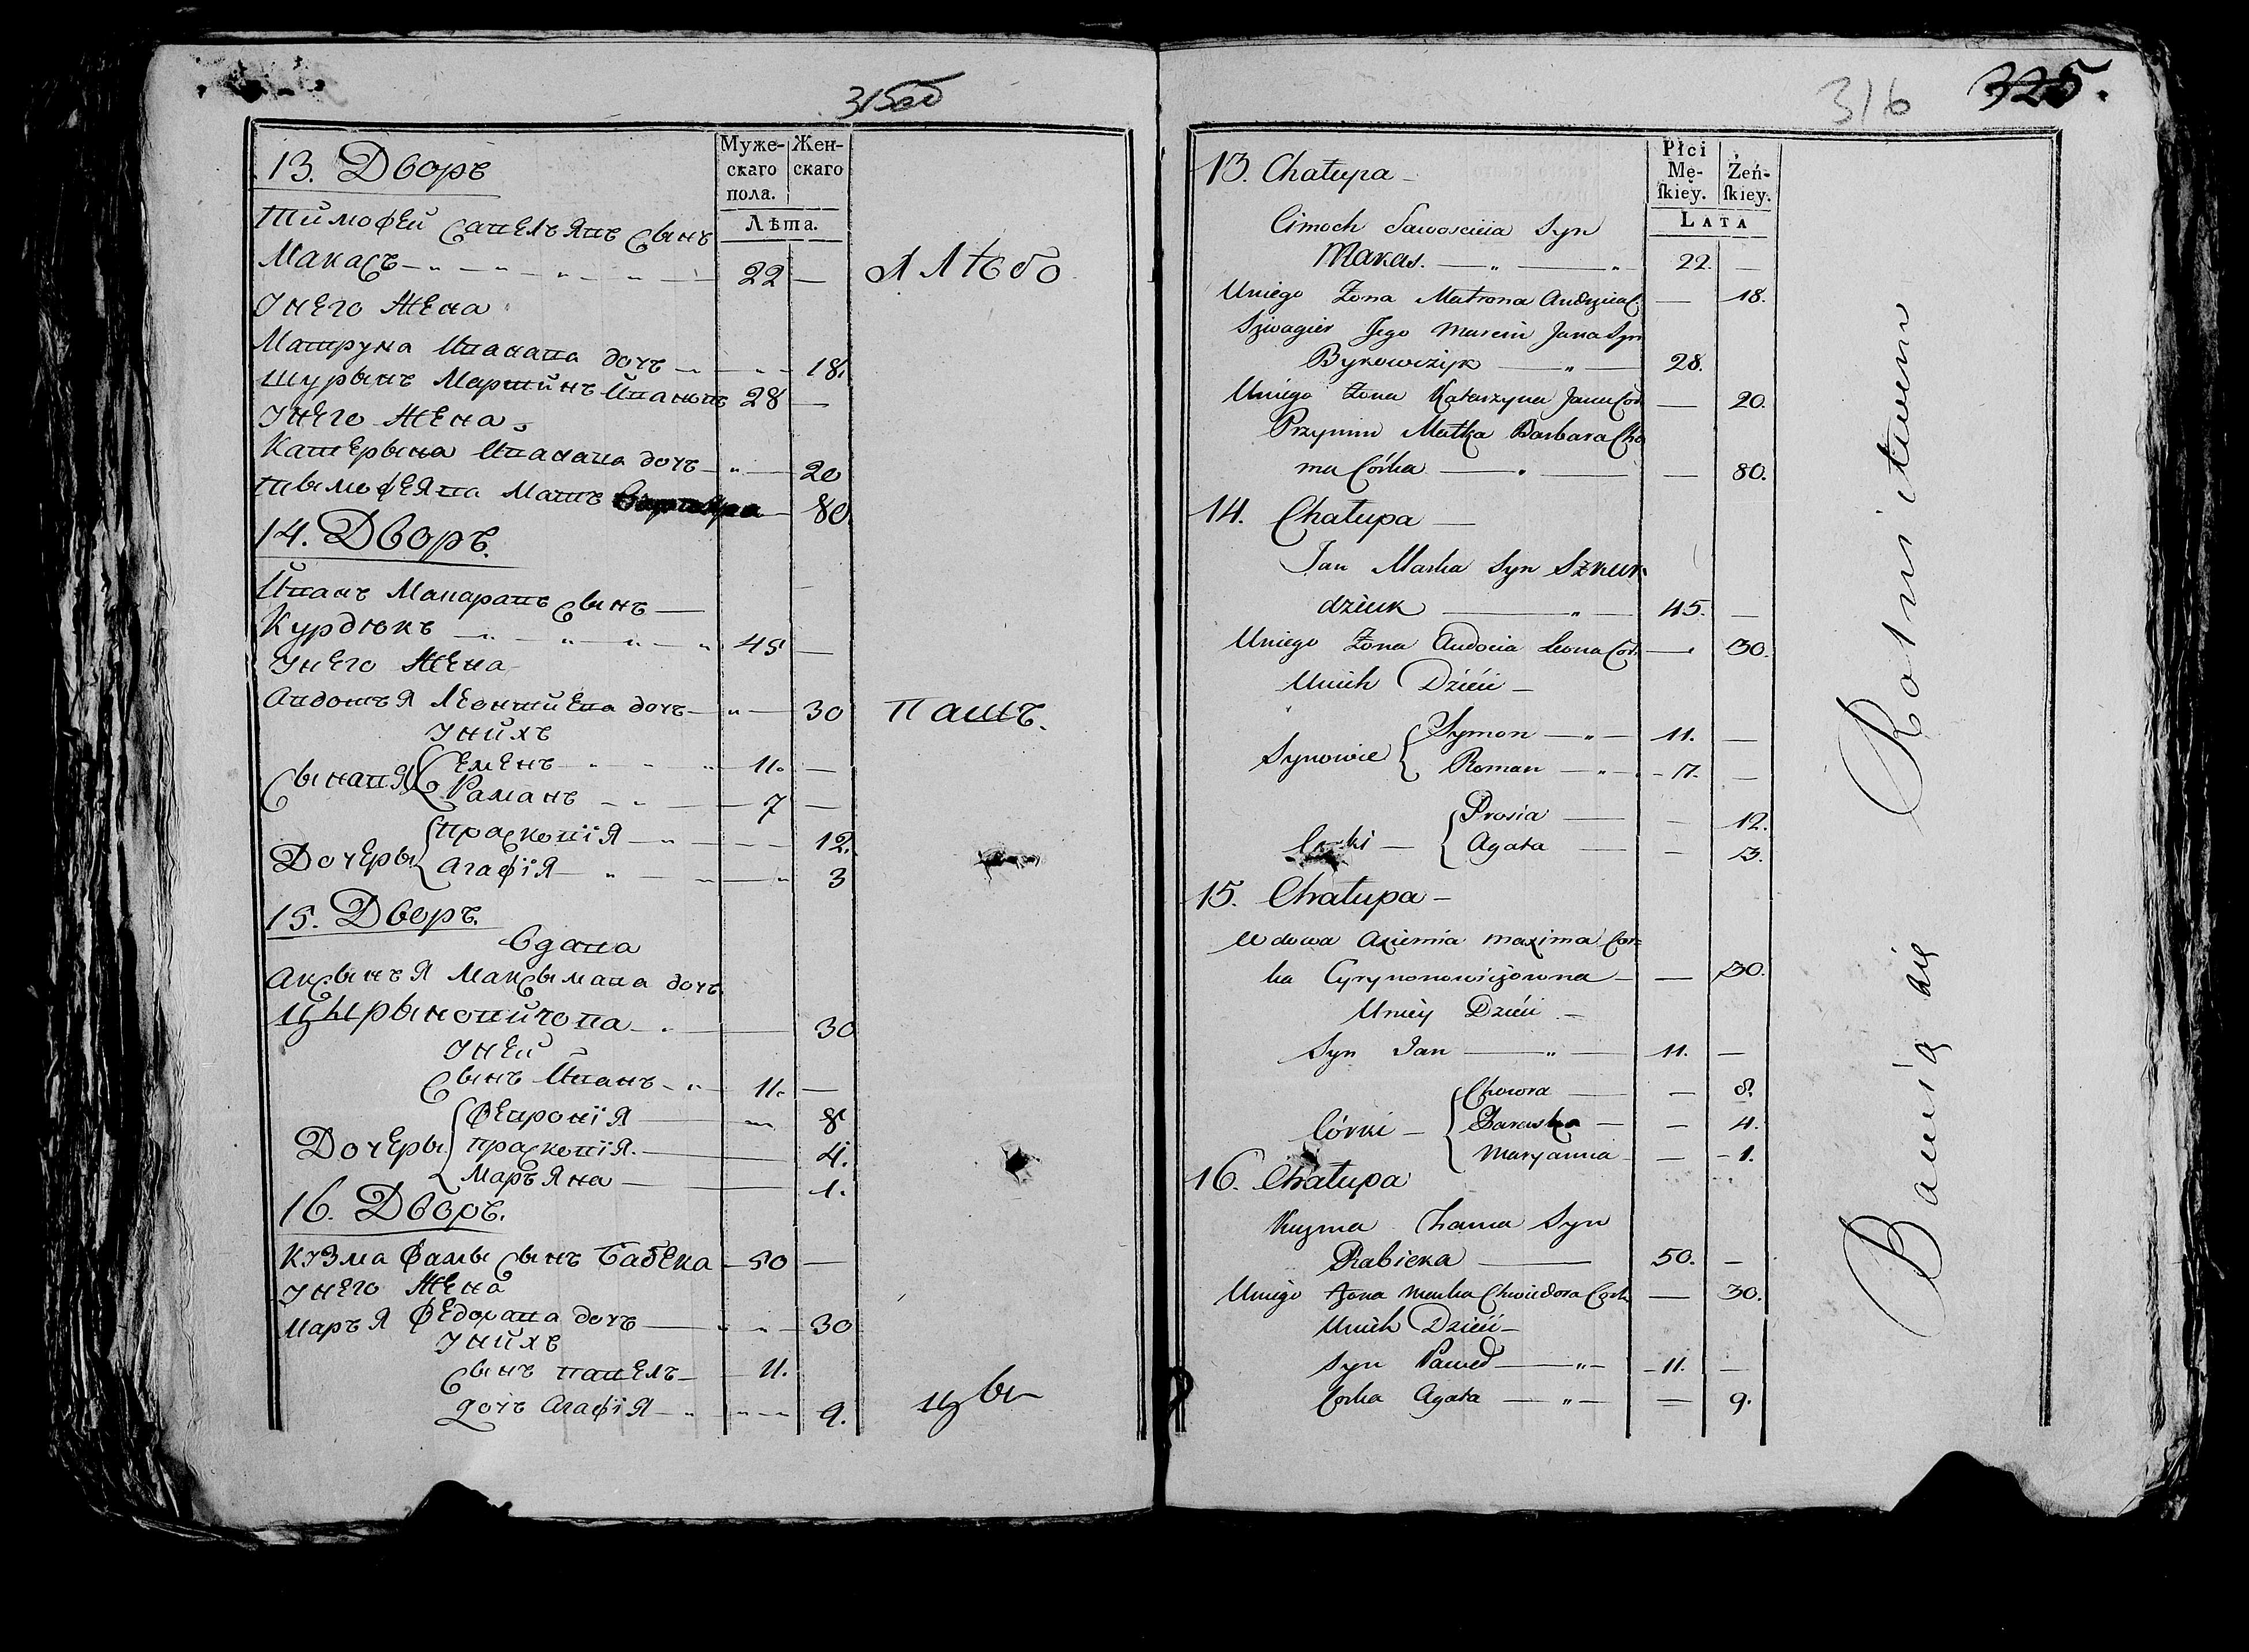 315об
13. Дворъ
Муже-
скаго
пола.
Жен-
скаго
Лѣта.
Тимофей Савельявъ Сынъ
Макасъ 22 —
Унего Жена
Матруна Ивanава дочъ 18.
Шурынъ Мартинъ Ивановъ 28 —
Унего Жена
Катерына Иванава дочъ 20
Тымофеява Мать 80
14. Дворъ.
Иванъ Макаравъ Сынъ —
Курдюкъ 45 —
Унего Жена
Авдотъя Леонтиева дочъ 30
Унихъ
Сынавя { Семенъ 11. —
Раманъ 7 —
Дочеры { Прасковія 12.
Агафія 3
15. Дворъ.
Вдава
Аксынъя Максымава дочъ.
Цырыновичова 30
Уней
Сынъ Иванъ 11. —
Дочеры { Февронія 8
Прасковія 4.
Маръяна 1.
16. Дворъ.
Кузма Фамы Сынъ Бабека 50 —
Унего Жена
Маръя Федорава дочъ 30
Унихъ
Сынъ Павелъ 11.
дочь Агафія 9.
316 325.
13. Chałupa
Płci
Mę-
skiey.
Żeń-
skiey.
LATA
Cimoch Sawosciia Syn
Makas. 22. —
Uniego Żona Matrona Andzieia C. — 18.
Szwagier Jego Marcin Jana Syn
Bykowczyk 28.
Uniego Żona Katarzyna Jana Cor. — 20.
Przynim Matka Barbara Cho
ma Córka — 80.
14. Chałupa —
Jan Marka Syn Szkur-
dziuk 45. —
Uniego Żona Audocia Leona Cor. — 30.
Unich Dzieci —
Synowie { Symon 11. —
Roman 7. —
Corki — { Prosia — 12.
Agata — 3.
15. Chałupa —
Wdowa Axiemia Maxima Cor=
ka Cyrynonowiczowna — 30.
Uniey Dzieci —
Syn Jan 11. —
Córki — { Chowra — 8.
Paraska — 4.
Maryanna — 1.
16. Chałupa
Kuzma Chama Syn
Babieka 50. —
Uniego Żona Marka Chwiedora Cork. — 30.
Unich Dzieci —
Syn Paweł 11. —
Corka Agata — 9.